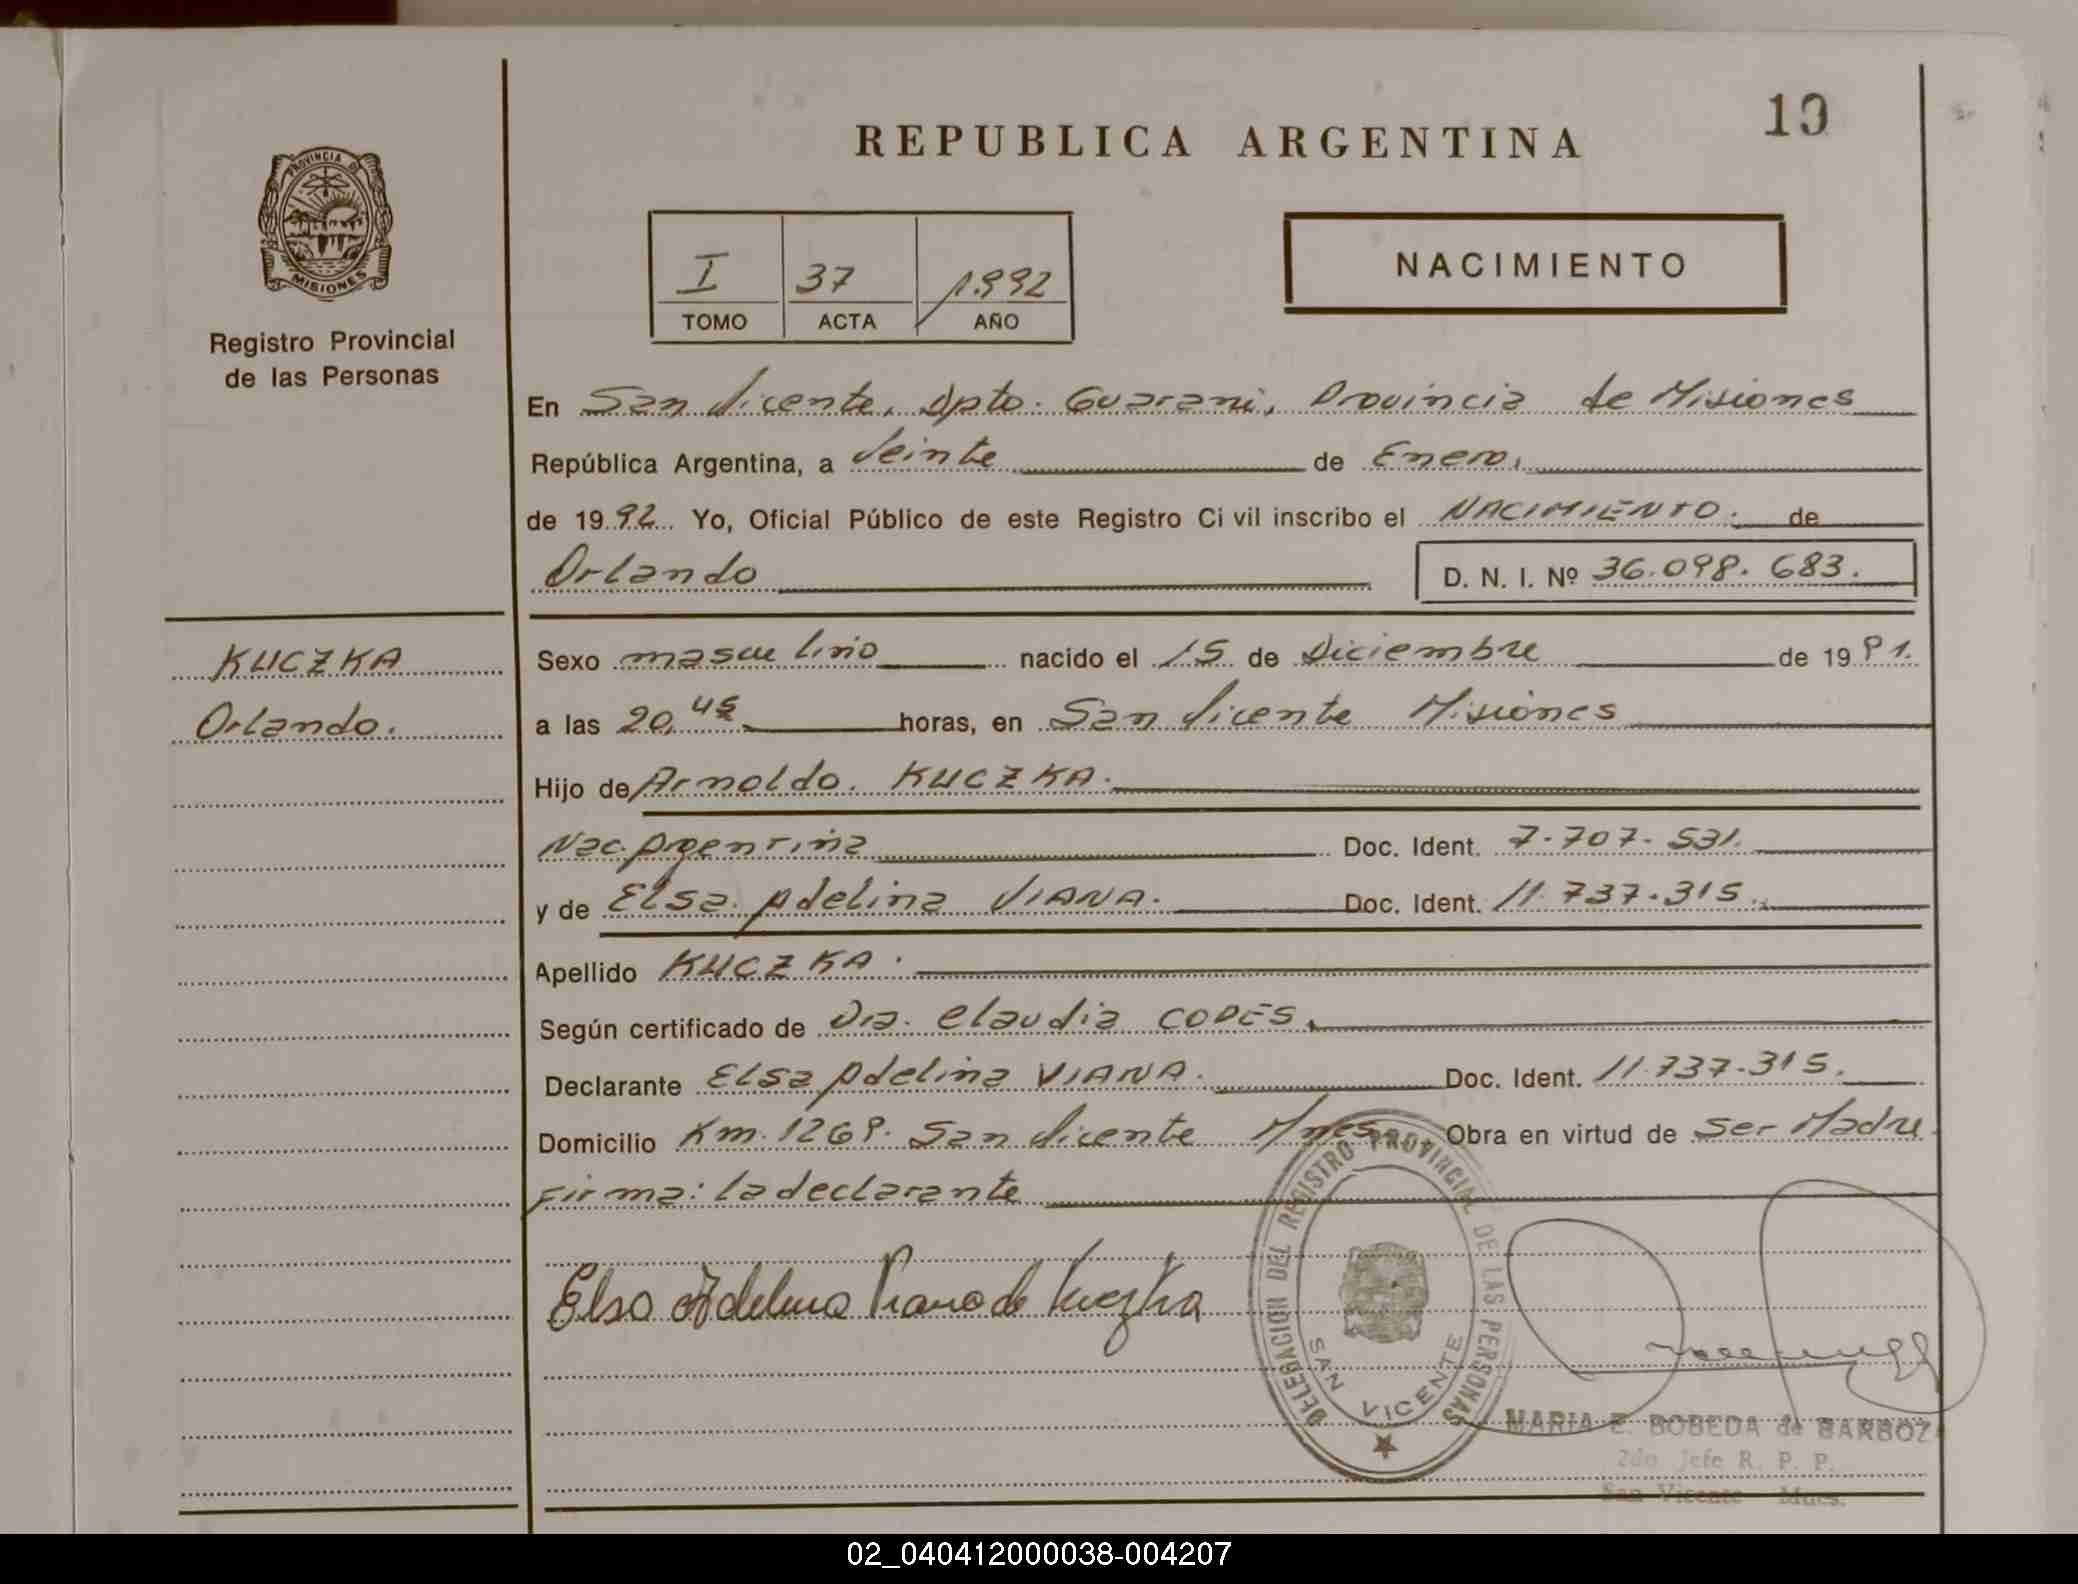 19
REPUBLICA ARGENTINA
PROVINCIA DE
MISIONES
NACIMIENTO
I 37 1.992
TOMO ACTA AÑO
Registro Provincial
de las Personas
En San Vicente, Dpto. Guarani, Provincia de Misiones
República Argentina, a Veinte de Enero,
de 1992 Yo, Oficial Público de este Registro Civil inscribo el NACIMIENTO. de
Orlando D. N. I. Nº 36.098.683.
KUCZKA
Orlando.
Sexo masculino nacido el 15 de Diciembre de 1991.
a las 20,45 horas, en San Vicente Misiones
Hijo de Arnoldo. KUCZKA.
Nac. Argentina Doc. Ident. 7.707.531.
y de Elsa Adelina VIANA. Doc. Ident. 11.737.315.
Apellido KUCZKA.
Según certificado de Dra. Claudia COPES.
Declarante Elsa Adelina VIANA. Doc. Ident. 11.737.315.
Domicilio Km. 1269. San Vicente Mnes Obra en virtud de Ser Madre.
Firma: la declarante
Elsa Adelina Viana de Kuczka
DELEGACION DEL REGISTRO PROVINCIAL DE LAS PERSONAS
SAN VICENTE
MARIA E. BOBEDA de BARBOZA
2do Jefe R. P. P.
San Vicente Mnes.
02_040412000038-004207